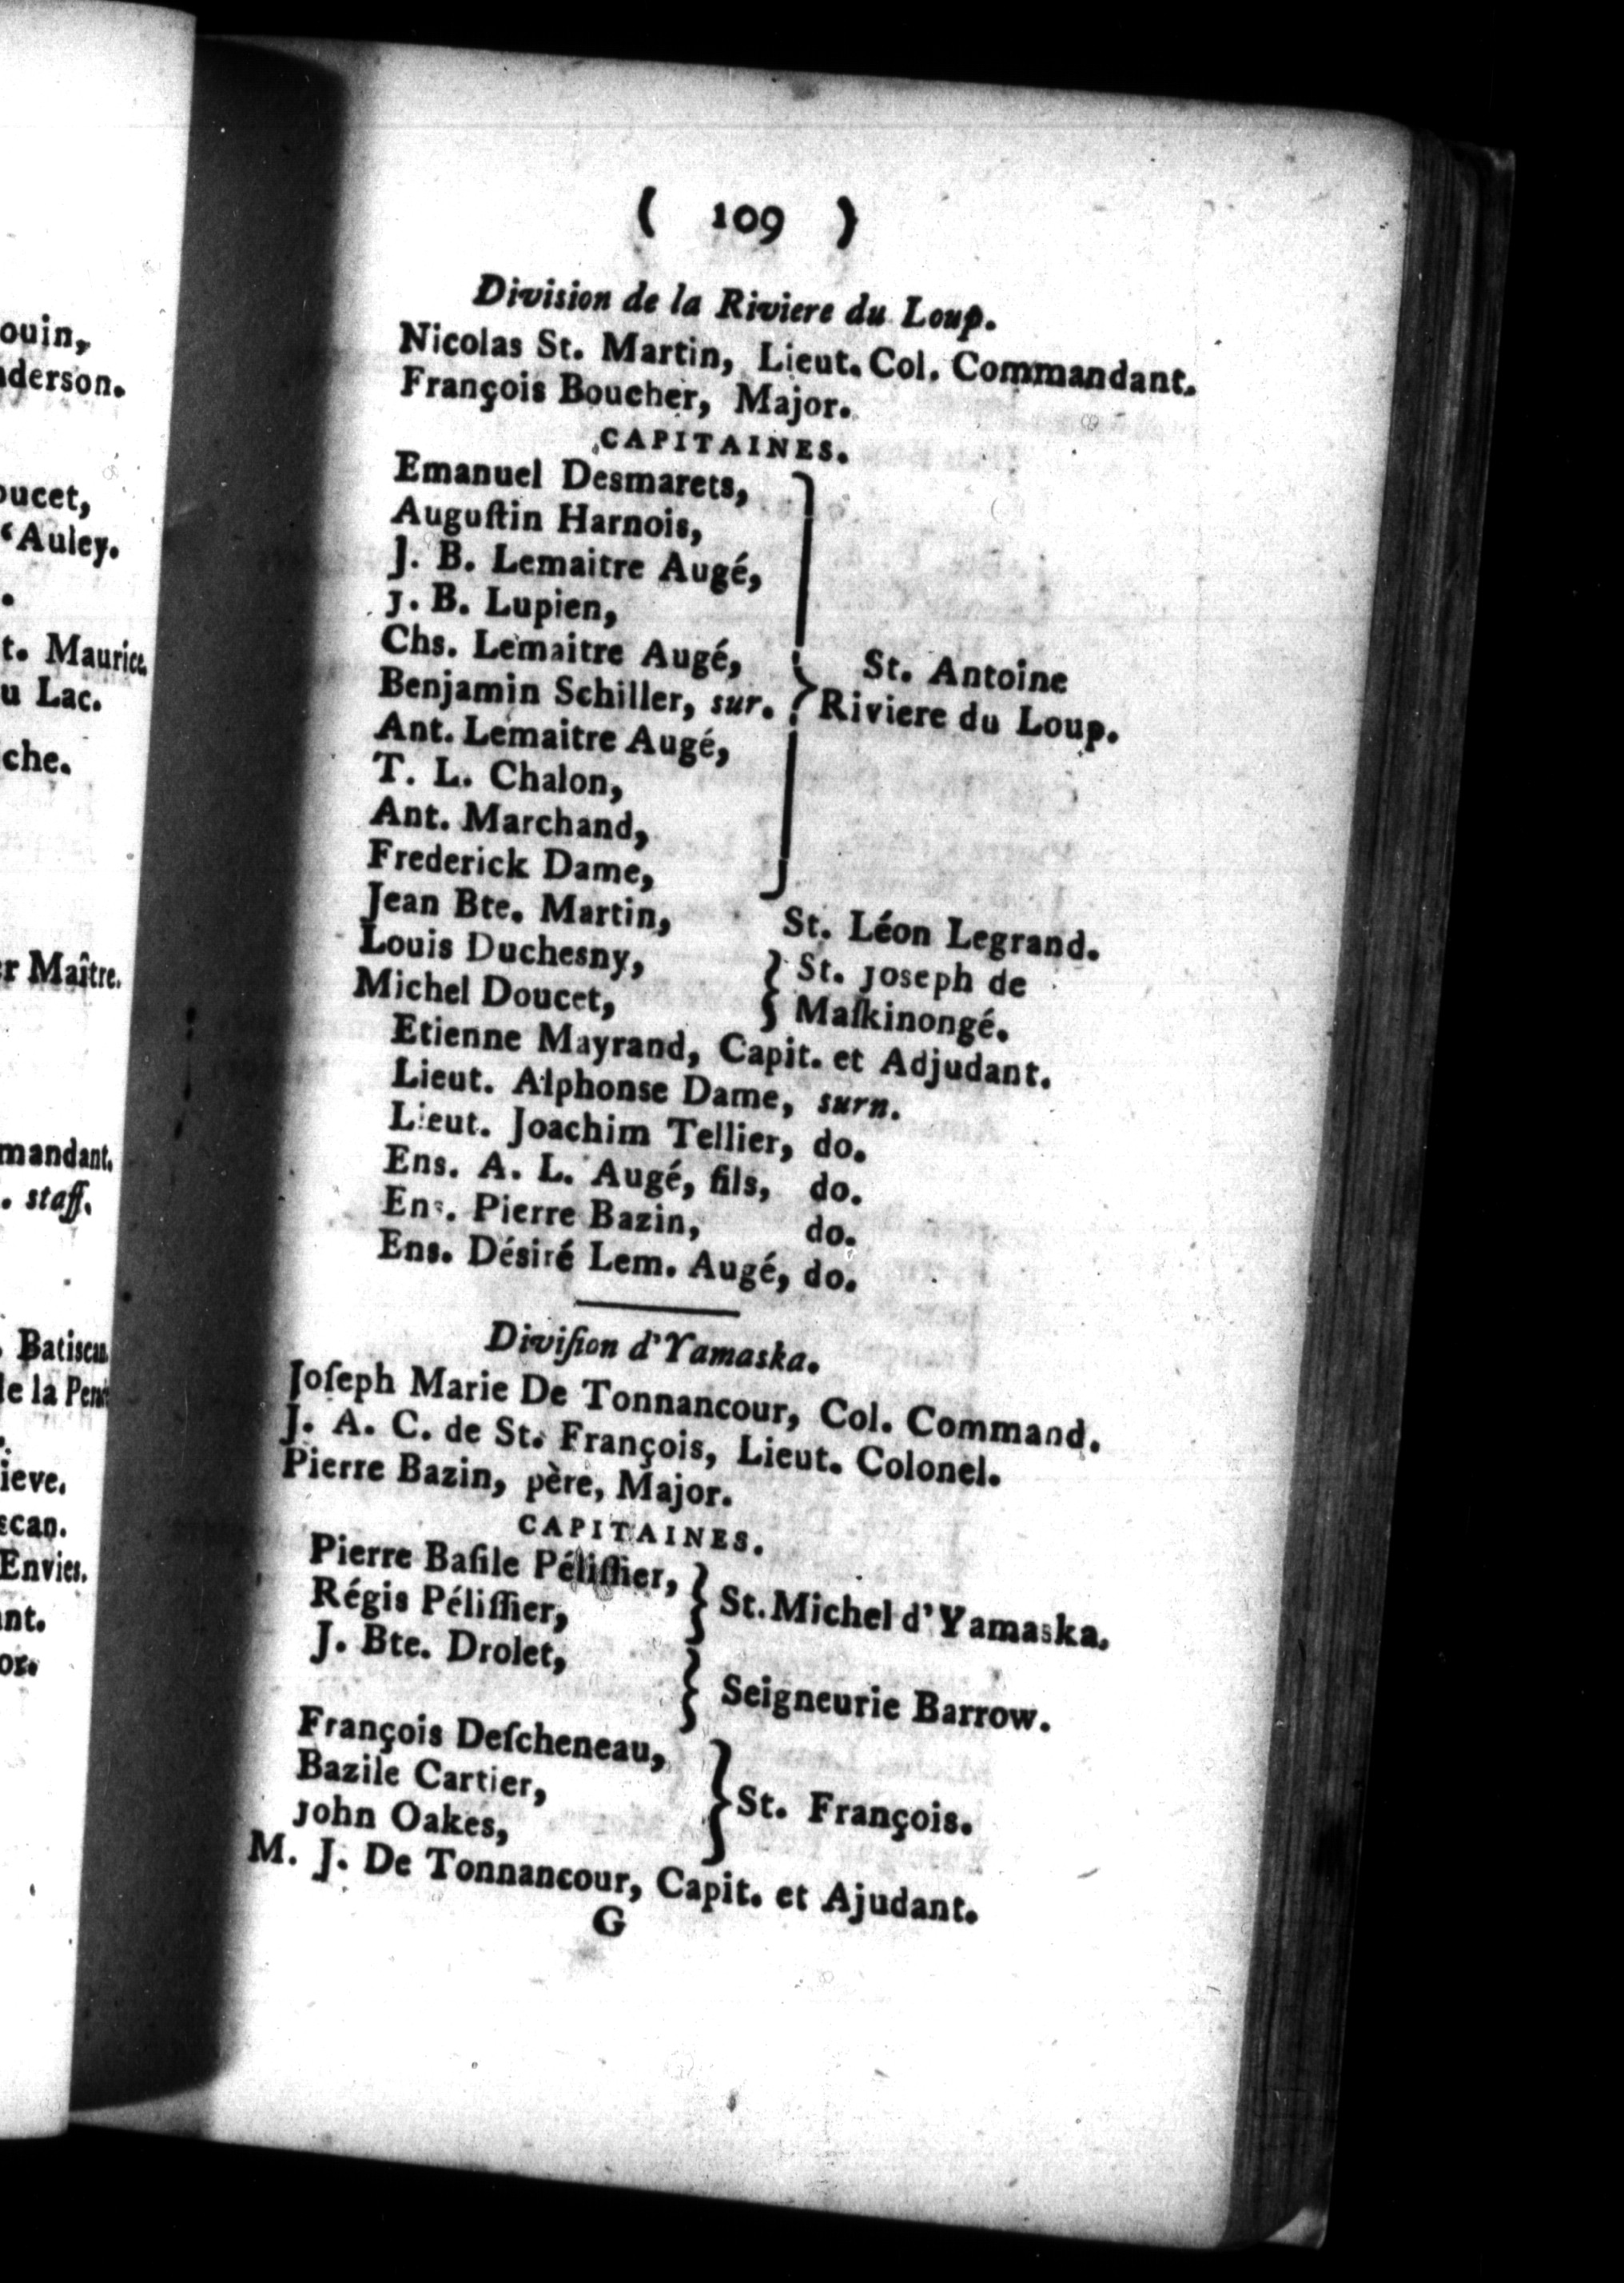 ouin,
nderson.
oucet,
‘Auley.
t. Maurice.
u Lac.
che.
er Maître.
mandant.
. staff.
. Batiscan
de la
ieve.
scan.
Envies.
nt.
or.
( 109 )
Division de la Riviere du Loup.
Nicolas St. Martin, Lieut. Col. Commandant.
François Boucher, Major.
CAPITAINES.
Emanuel Desmarets,
Auguſtin Harnois,
J. B. Lemaitre Augé,
J. B. Lupien,
Chs. Lemaitre Augé,
Benjamin Schiller, sur.
Ant. Lemaitre Augé,
T. L. Chalon,
Ant. Marchand,
Frederick Dame,
} St. Antoine
Riviere du Loup.
Jean Bte. Martin, St. Léon Legrand.
Louis Duchesny, } St. Joseph de
Michel Doucet, } Maſkinongé.
Etienne Mayrand, Capit. et Adjudant.
Lieut. Alphonse Dame, surn.
Lieut. Joachim Tellier, do.
Ens. A. L. Augé, fils, do.
Ens. Pierre Bazin, do.
Ens. Désiré Lem. Augé, do.
Diviſion d'Yamaska.
Joſeph Marie De Tonnancour, Col. Command.
J. A. C. de St. François, Lieut. Colonel.
Pierre Bazin, père, Major.
CAPITAINES.
Pierre Baſile Péliſſier,
Régis Péliſſier,
} St. Michel d'Yamaska.
J. Bte. Drolet,
} Seigneurie Barrow.
François Deſcheneau,
Bazile Cartier,
John Oakes,
} St. François.
M. J. De Tonnancour, Capit. et Ajudant.
G